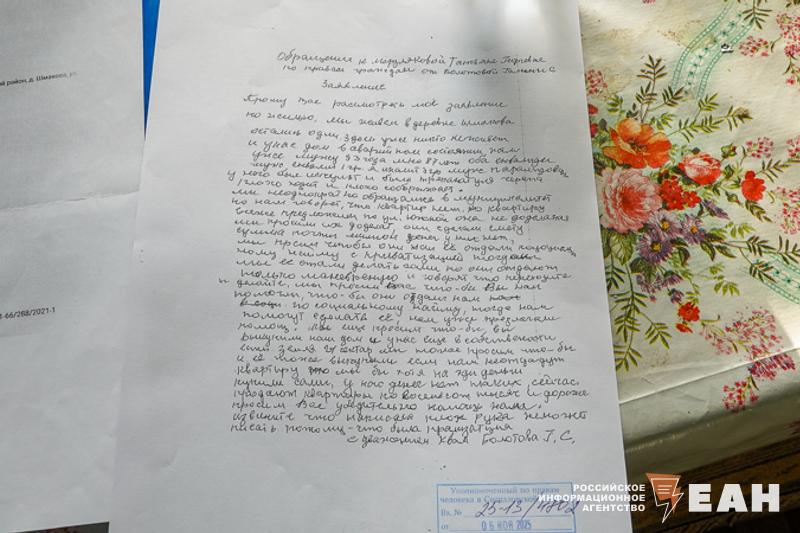 й район, д. Шмакова, ул.
1-66/288/2021-1
Обращение к Мерзляковой Татьяне Георгевне
по правам граждан от Болотовой Г С
Заявление
Прошу Вас рассмотреть моё заявление
по жилью, мы живём в деревне Шмакова
остались одни, здесь уже никто не живёт
и у нас дом в аварийном состоянии, нам
уже мужу 93 года мне 87 лет оба инвалиды
муж инвалид 1 гр. я инвалид 3 гр
у него был инсульт и была черепа
плохо ходит и плохо соображает.
мы неоднократно обращались в муниципалитет
но нам говорят, что квартир нет,
предложили по ул. она не доделана
мы просили их доделать, они сделали смету,
сумма почти милион денег у них нет,
мы просим чтобы они
ному найму с приватизацией тогда
мы её стали делать сами но они отдают
только маневренную и говорят что переходите
делайте, мы просим Вас что-бы Вы нам
помогли, что-бы они отдали нам
по социальному найму, тогда нам
помогут сделать её, нам уже предлогали
помощь. Мы ещё просим что-бы, вы
выкупили наш дом и у нас ещё в собственности
есть земля гектар мы тоже просим что-бы
и её тоже выкупили если нам неотдадут
квартиру мы бы хотя на эти деньги
купили сами, у нас денег нет таких, сейчас
продают квартиры по восемьсот тысяч и дороже
просим Вас убедительно помочь нам.
извините что написала плохо рука неможет
писать потому-что была
с уважением к Вам Болотова Г, С,
Уполномоченный по правам
человека в Свердловской
Вх. № 25-13/4802
от 06 НОЯ 2025
РОССИЙСКОЕ
ИНФОРМАЦИОННОЕ
АГЕНТСТВО
ЕАН